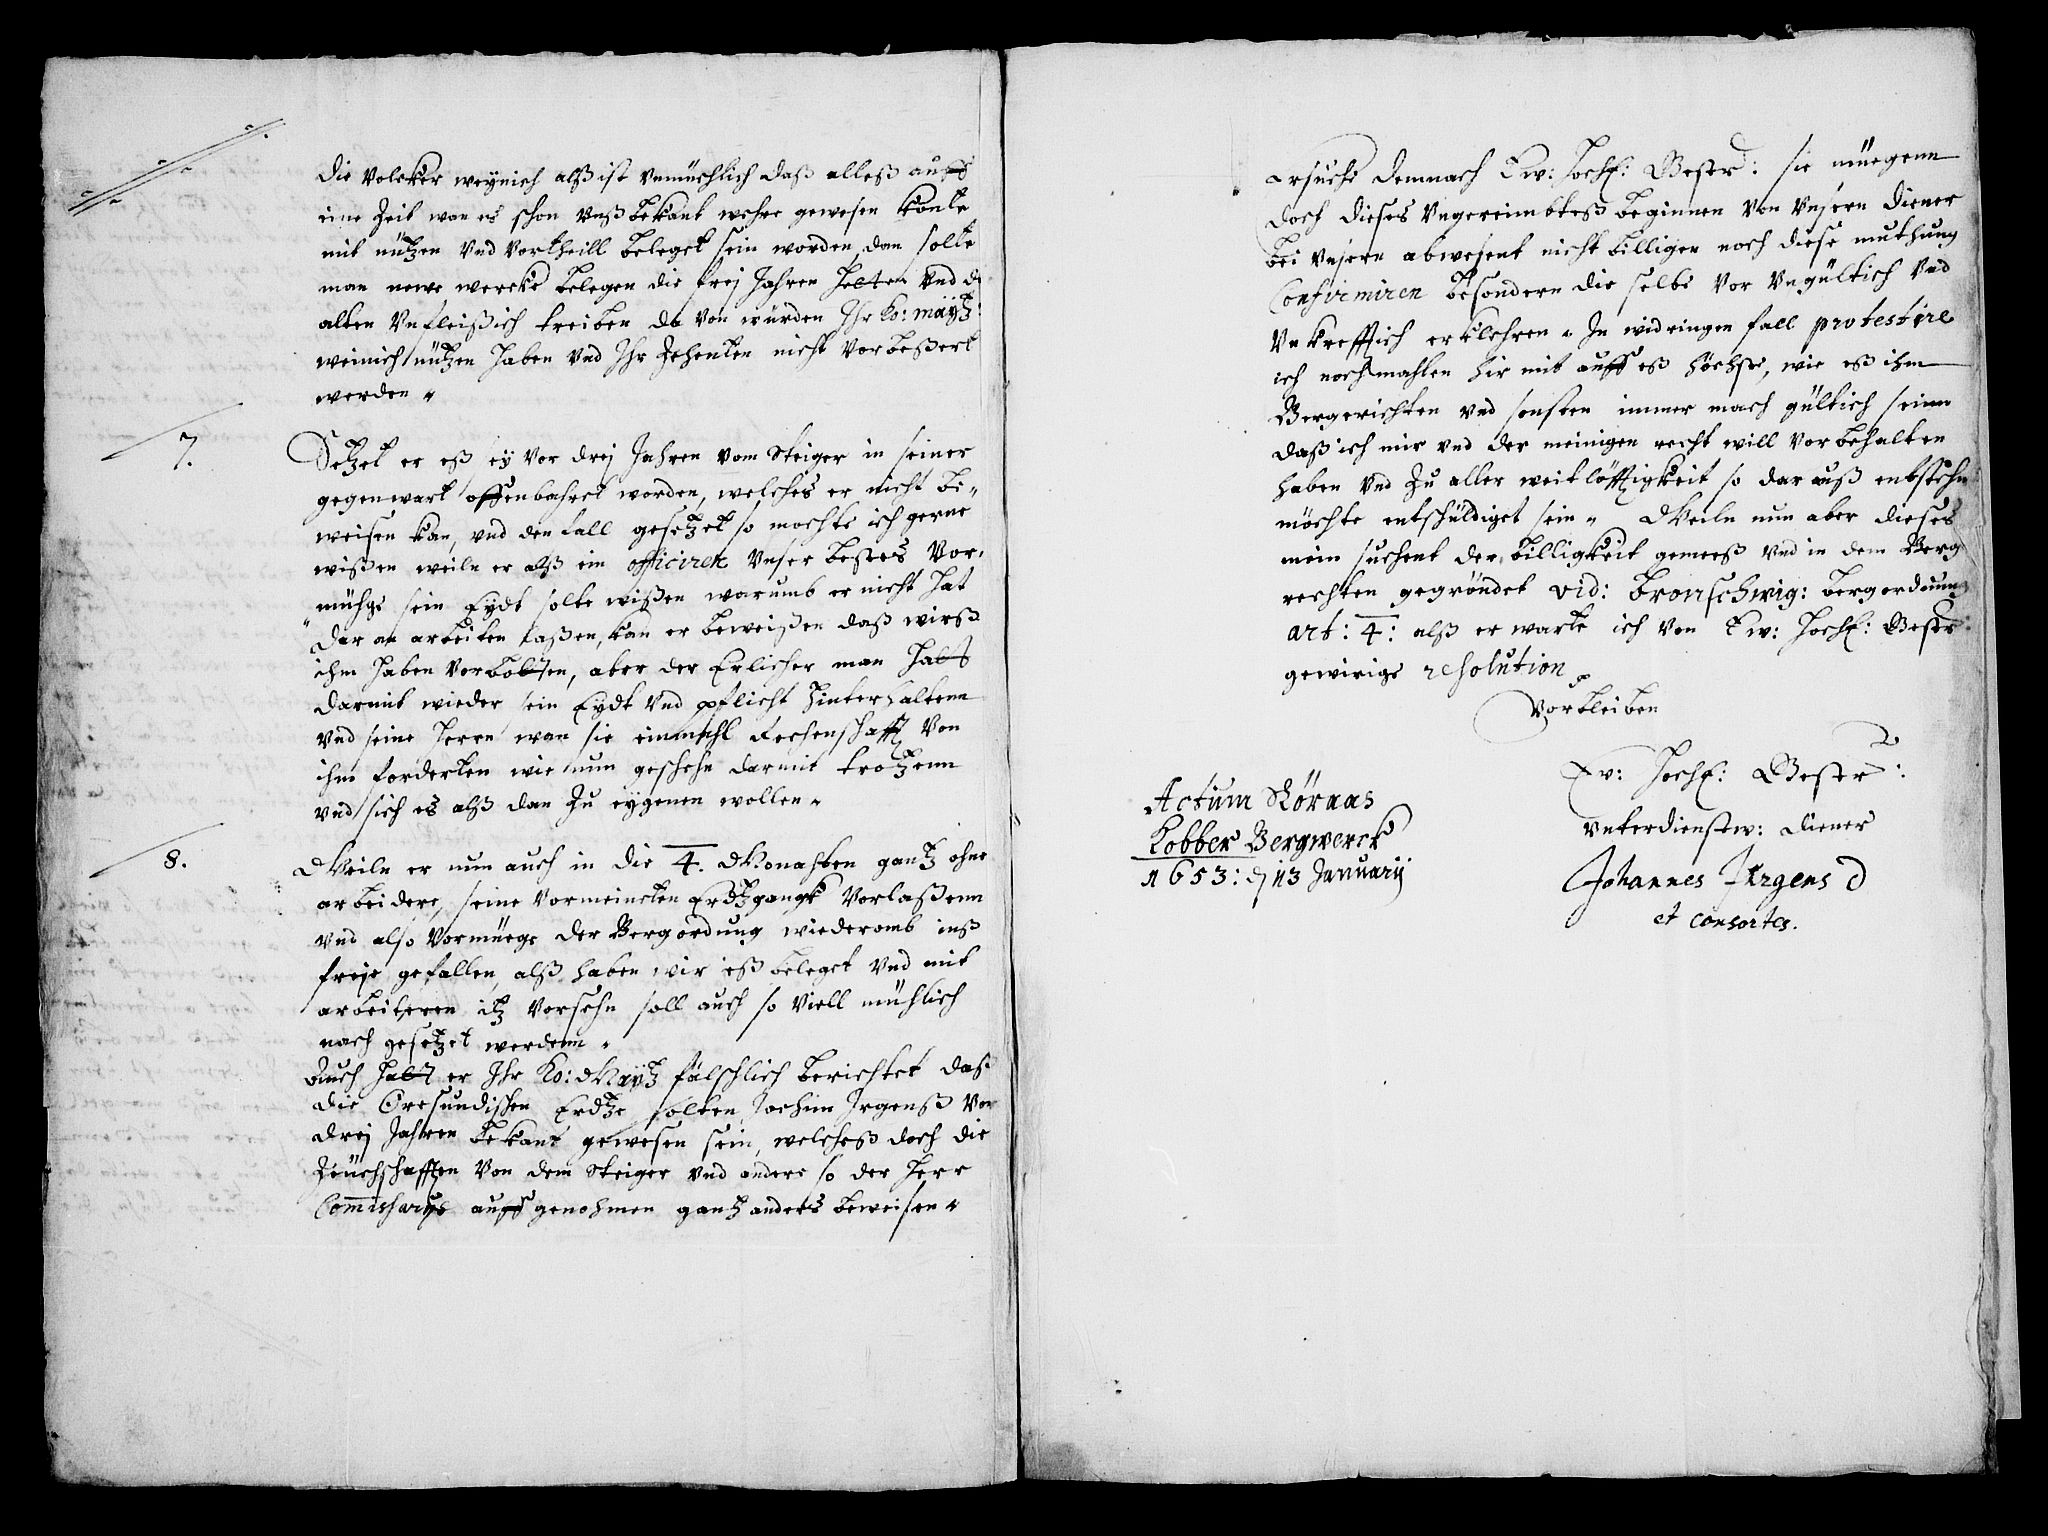 die Volcker weynich alß ist vnmüchlich daß alleß auff
eine Zeit wan es schon vnß bekant wehre gewesen konte
mit nützen vnd vortheill beleget sein worden, dan solte
man newe wercke belegen die frej Jahren halten vnd di
alten vnfleißich treiben da von würden Ihr Ko: Maytz:
weinich nützen haben vnd Ihr Zehenten nicht vorbeßert
werden
7.
Setzet er eß ey vor drej Jahren vom Steiger in seiner
gegenwart offenbahret worden, welches er nicht be-
weisen kan, vnd den fall gesetzet so mochte ich gerne
wißen weiln er alß ein officirer Vnser bestes Vor-
mühge sein Eydt solte wißen warumb er nicht hat
dar an arbeiten laßen, kan er beweißen daß wirß
ihm haben vorbotten, aber der Erlicher man hatt
darmit wieder sein Eydt vnd pflicht hinterhaltenn
vnd seine Herrn wan sie einmahl Rechenschafft von
ihm forderten wie nun geschehn darmit trotzenn
vnd sich es alß dan Zu eygenen wollen
8.
Weiln er nun auch in die 4. Monahten gantz ohne
arbeidere, seine vormeinten Erdtzgangk vorlaßenn
vnd also vormüege der Bergordung wiederomb inß
freje gefallen, alß haben wir eß beleget vnd mit
arbeiteren itz vorsehn soll auch so viell mühlich
nach gesetzet werdenn
Auch hatt er Ihr Ko: Maytz fälschlich berichtet daß
die Oresundischen Erdtze solten Jochim Irgenß vor
drej Jahren bekant gewesen sein, welcheß doch die
Zeuchschafften von dem Steiger vnd andere so der Herr
Commissarius auff genohmen gantz anders beweisen
ersuche demnach Ew: Hochf: Gestr: sie müegenn
doch dieses vngereimbteß beginnen von vnsern diener
bei vnsern abwesent nicht billigen noch diese muthung
Confirmiren besondern die selbe vor vngültich vnd
vnkrefftich erklehren. In widringen fall protestire
ich nochmahlen hir mit auff eß höchste, wie eß ihm
Bergerichten vnd sonsten immer mach gültich seinn
daß ich mir vnd der meinigen recht will vorbehalten
haben vnd Zu aller weitlöfftigkeit so dar auß entstehn
möchte entschüldiget sein. Weiln nun aber dieses
mein suchent der billigkeit gemeeß vnd in dem Berg
rechten gegründet vid: bronschwig: bergordnung
art: 4: alß erwarte ich von Ew: Hochf: Gestr:
gewirige resolution
Vorbleiben
Ew: Hochf: Gestr:
vnterdienstw: diener
Johannes Irgens
et consortes.
Actum Rörnas
Kobber Bergwerck
1653: d 13 January